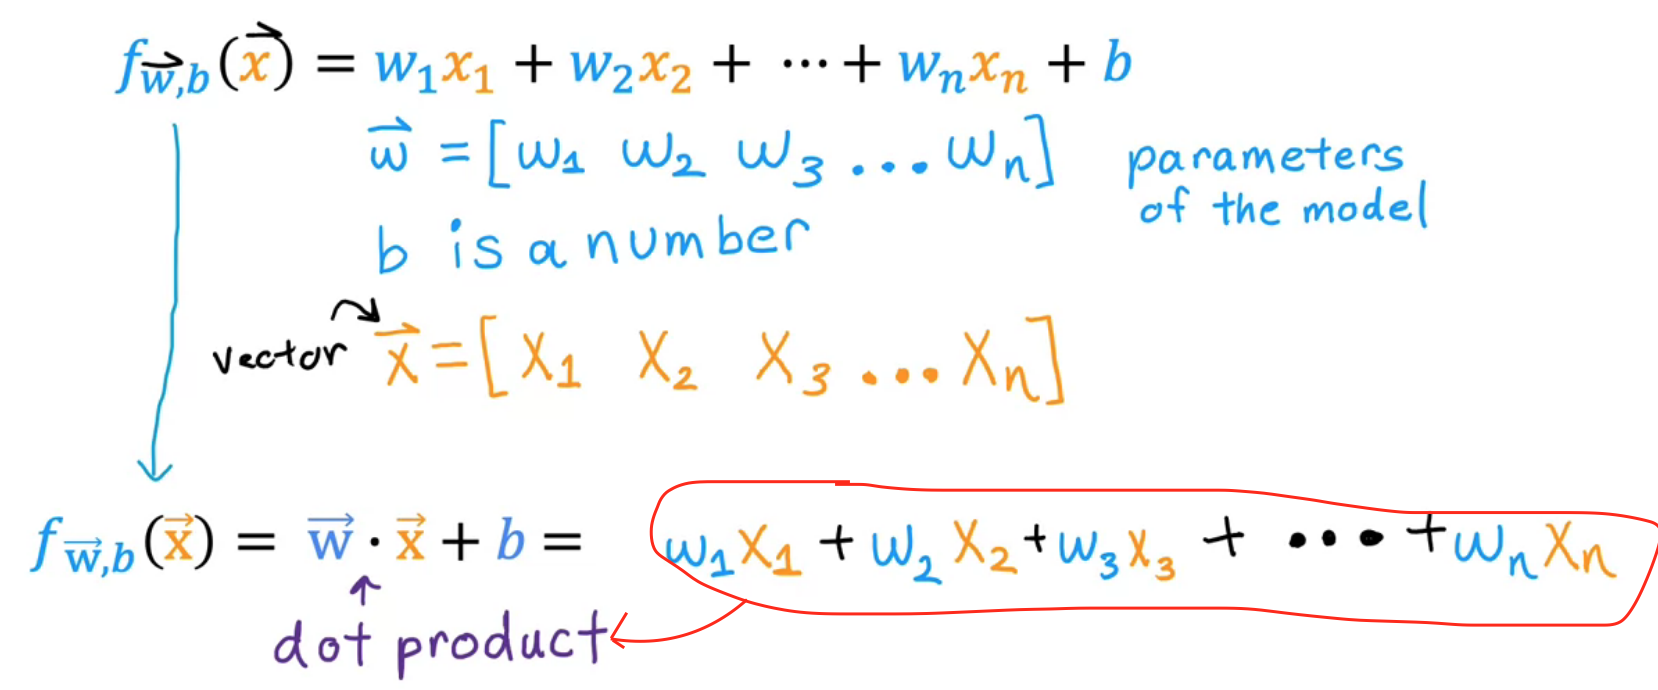 f_{\vec{w},b}(\vec{x}) = w_1x_1 + w_2x_2 + ⋯ + w_nx_n + b
\vec{w} = [w_1 w_2 w_3 ... w_n] parameters
of the model
b is a number
vector \vec{x} = [x_1 x_2 x_3 ... x_n]
f_{\vec{w},b}(\vec{x}) = \vec{w} · \vec{x} + b = w_1x_1 + w_2x_2 + w_3x_3 + ... + w_nx_n
dot product